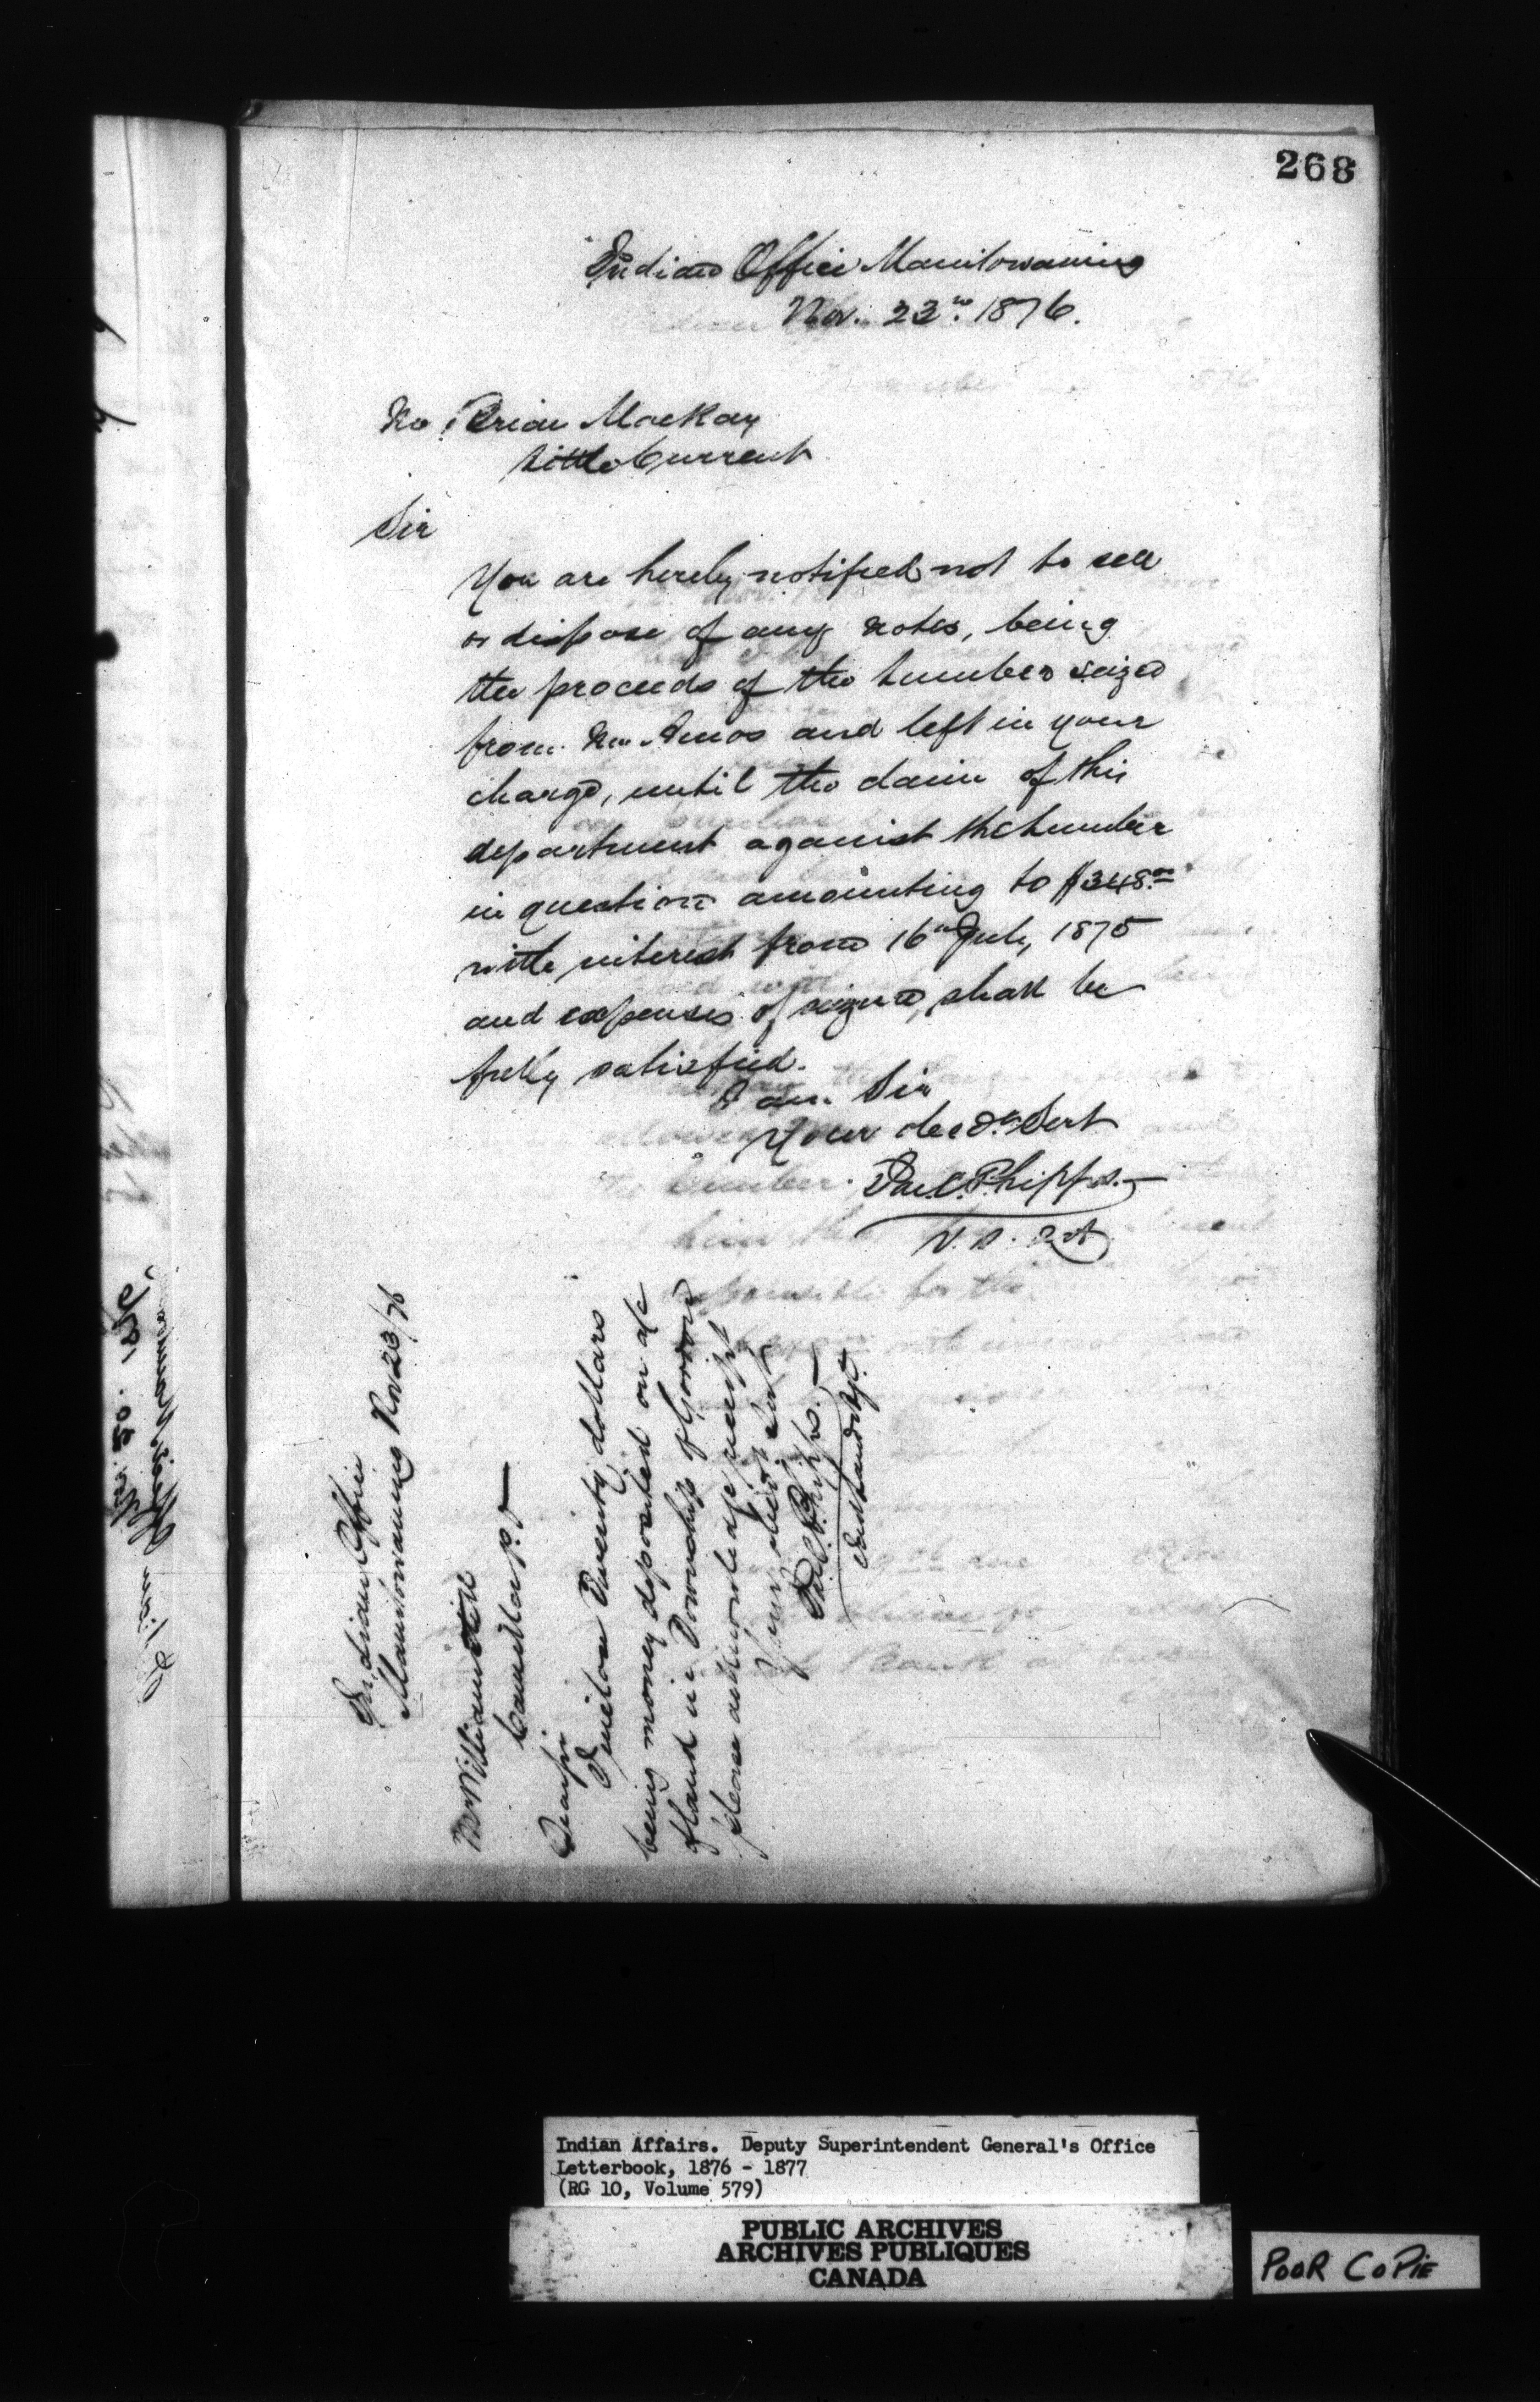 268
Indian Office Manitowaning
Nov. 23rd 1876.
Mr Brian MacKay
Little Current
Sir
You are hereby notified not to sell
or dispose of any notes, being
the proceeds of the lumber seized
from Mr Amos and left in your
charge, until the claim of this
department against the lumber
in question amounting to $348.00
with interest from 16th July, 1875
and expenses of seizure, shall be
fully satisfied.
I am Sir
Your obed. Servt
Jas. C. Phipps.
V. S. Supt
Indian Office
Manitowaning Nov 23/76
Mr William
P.O
Sir
Enclosed Twenty dollars
being money deposited on a/c
of land in Township of Gordon
please acknowledge receipt
Your obed. Servt
Jas. C. Phipps.
Indian Office Manitowaning
Nov. 20. 1876
Indian Affairs. Deputy Superintendent General's Office
Letterbook, 1876 - 1877
(RG 10, Volume 579)
PUBLIC ARCHIVES
ARCHIVES PUBLIQUES
CANADA
POOR COPIE